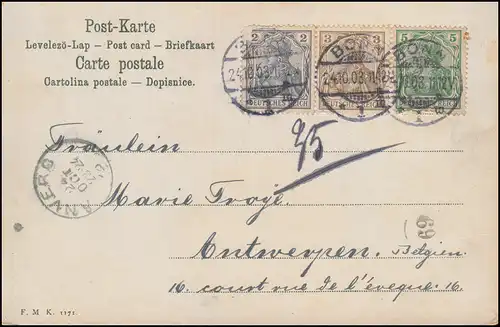 Post-Karte
Levelező-Lap — Post card — Briefkaart
Carte postale
Cartolina postale — Dopisnice.
2 2
DEUTSCHES REICH
3 3
DEUTSCHES REICH
5 5
REICH
BONN
24.10.03.11-12V
1 e
BONN
Fräulein
Marie Troye.
Antwerpen. Belgien.
16. const rue de l'éveque 16.
25
69
ANVERS
24
OCT
F. M. K. 1171.